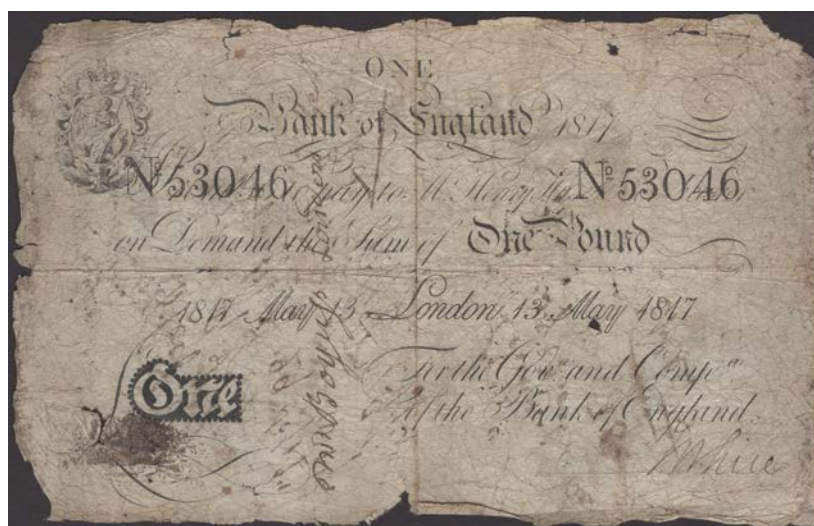 ONE
Bank of England 1817
No 53046 to pay to Mr Henry Hase No 53046
on Demand the Sum of One Pound
1817 May 13 London 13 May 1817
For the Govr and Compa
of the Bank of England
One